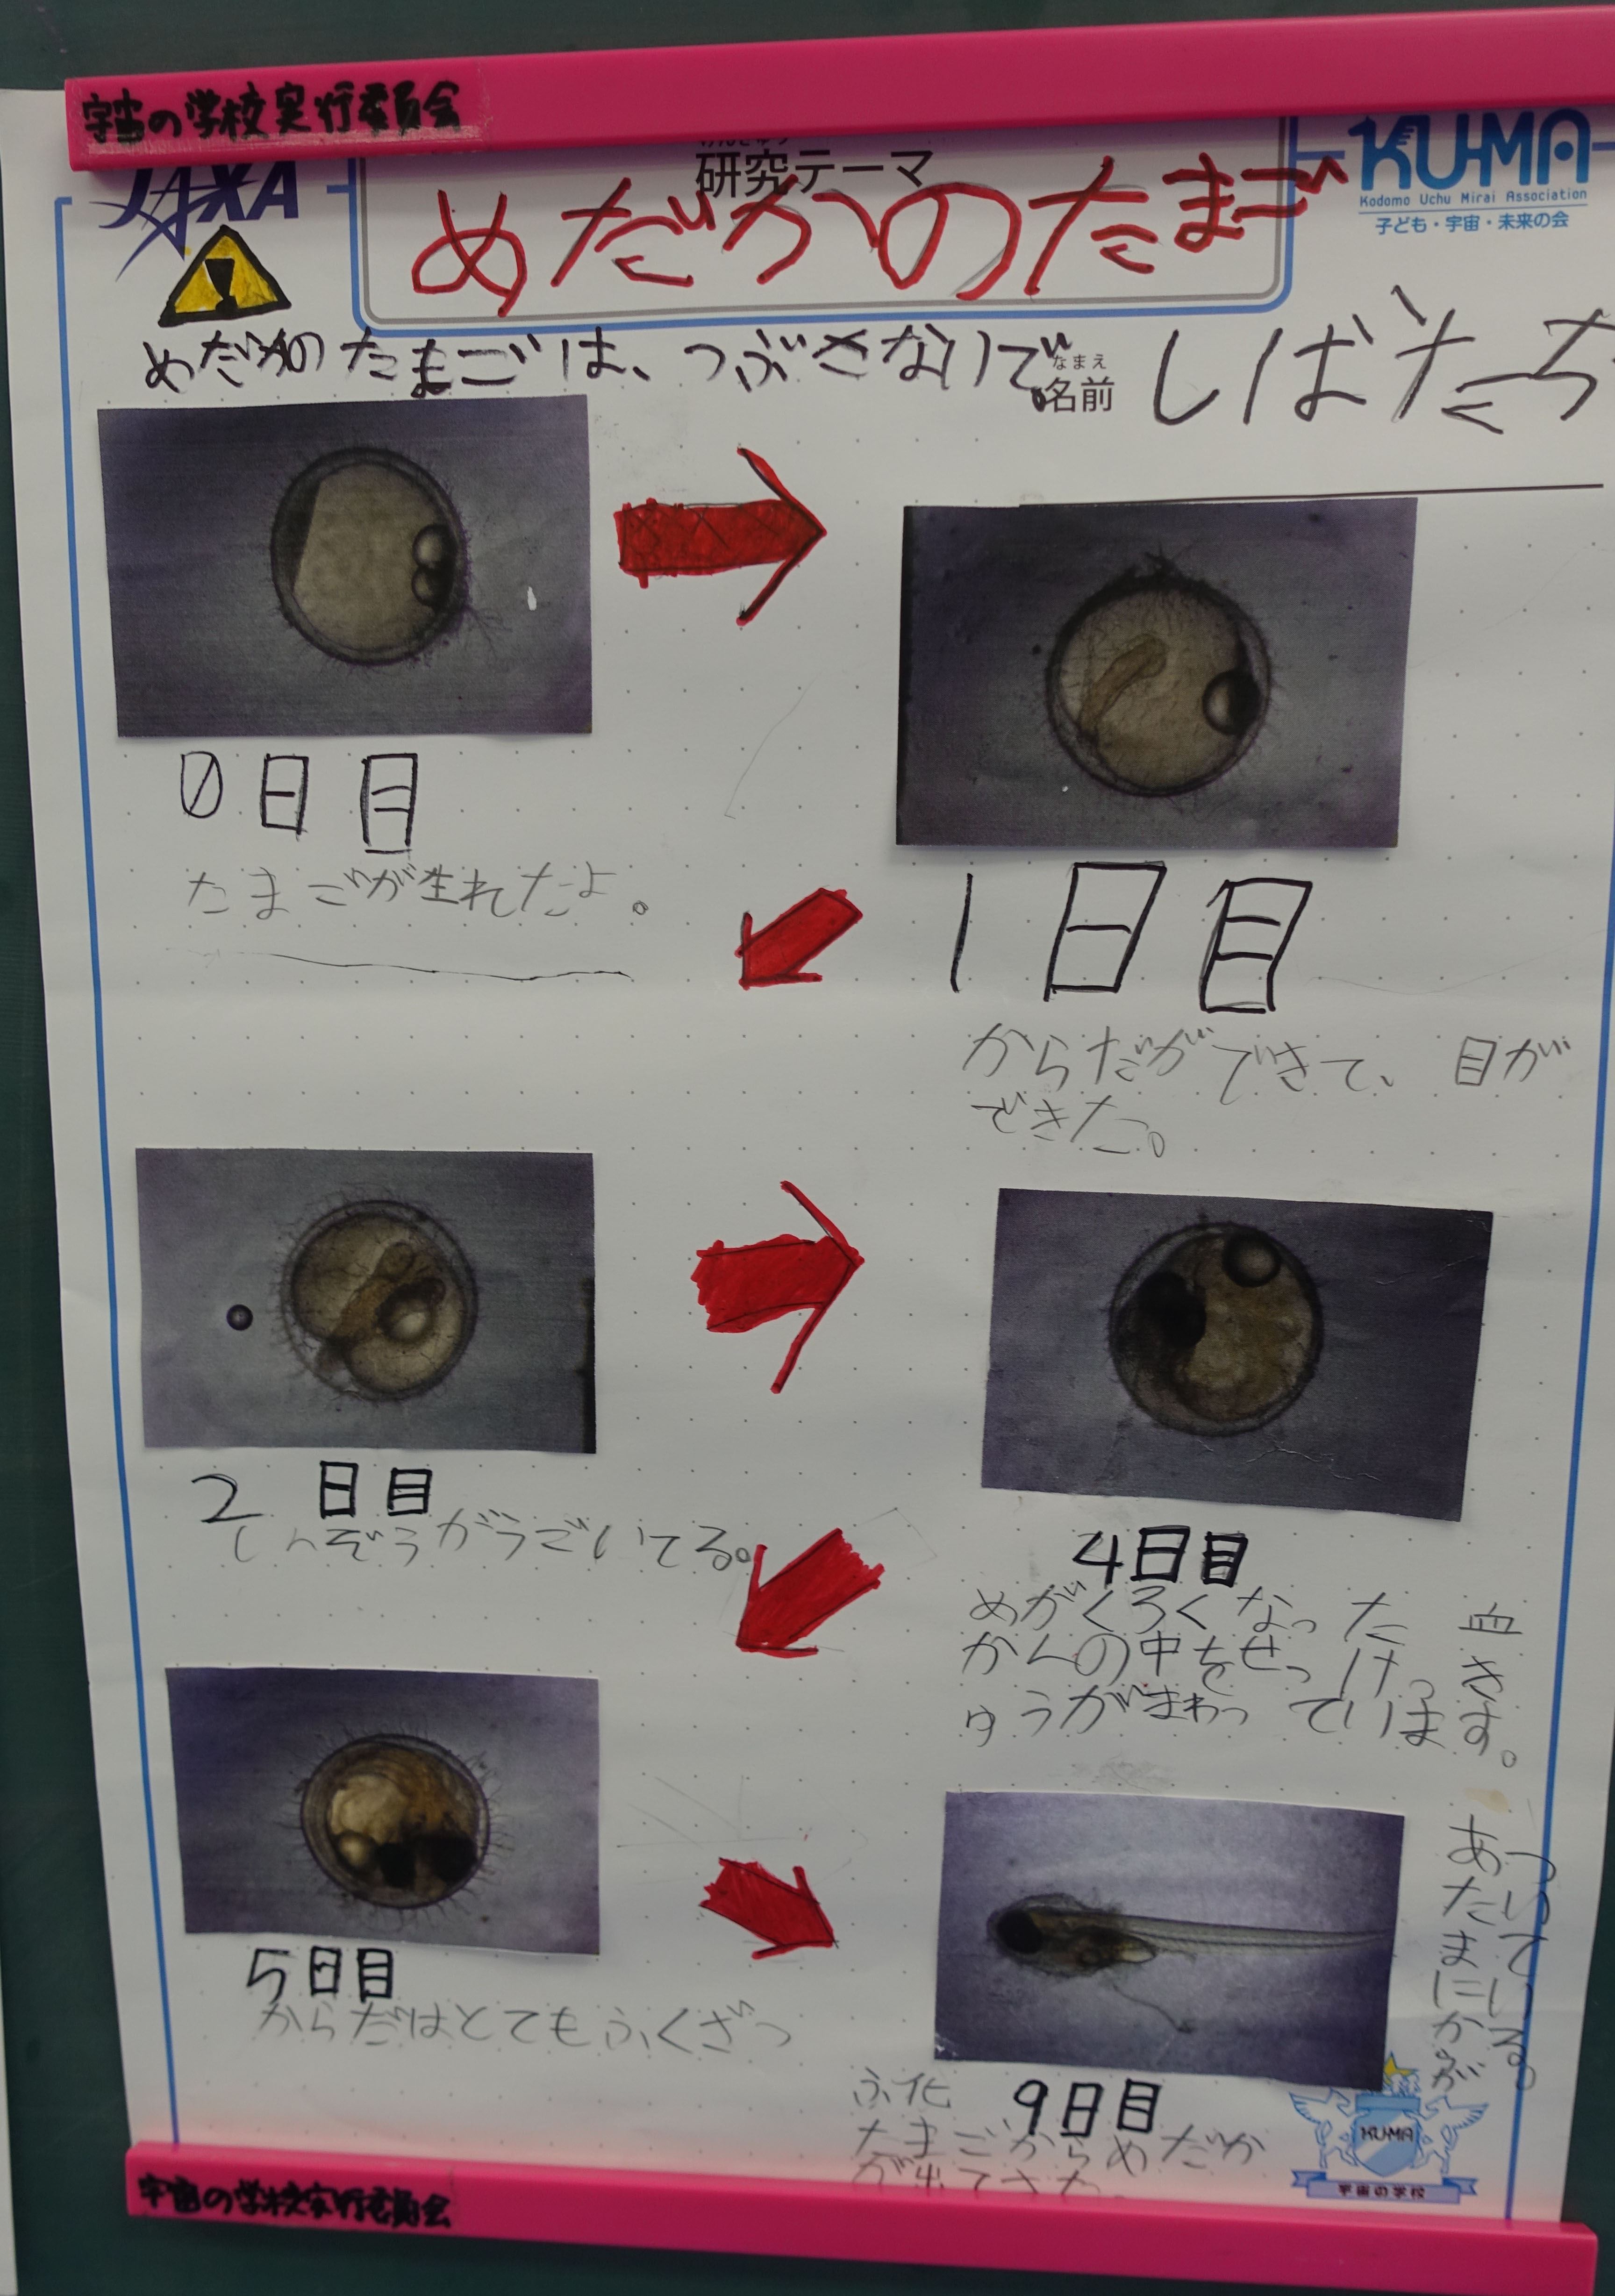 宇宙の学校実行委員会
JAXA
研究テーマ
めだかのたまご
KUMA
Kodomo Uchu Mirai Association
子ども・宇宙・未来の会
めだかのたまごは、つぶさないで。
なまえ
名前
しばたち
0日目
たまごが生れたよ。
1日目
からだができて、目が
できた。
2日目
しんぞうがうごいてる。
4日目
めがくろくなった 血
かんの中をせっけっき
ゅうがまわっています。
5日目
からだはとてもふくざつ
あたまにかが
ついている。
ふ化 9日目
たまごからめだか
が出てきた。
KUMA
宇宙の学校
宇宙の学校実行委員会